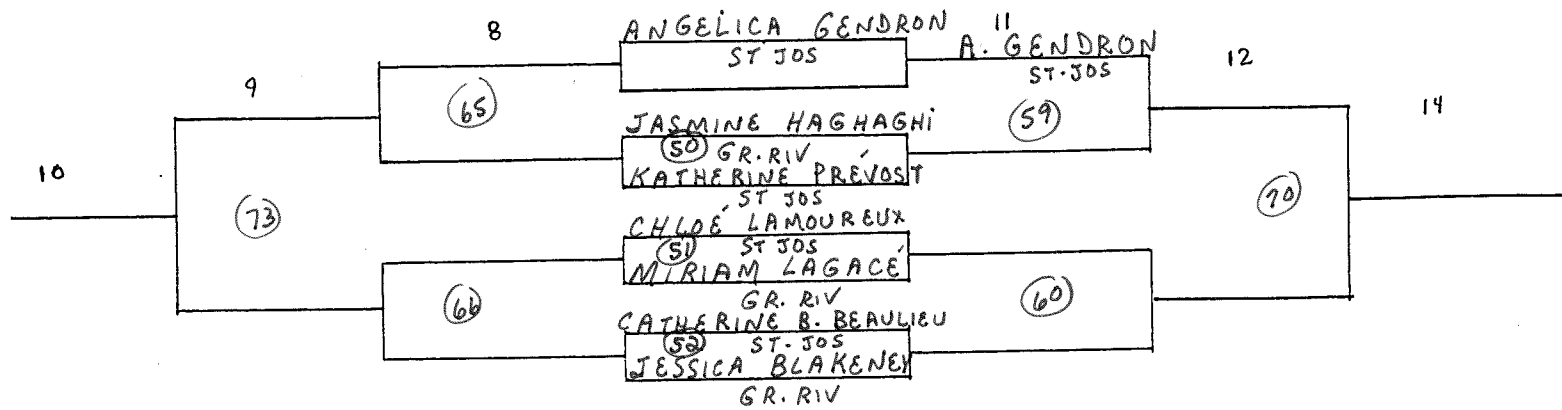 8
ANGELICA GENDRON
11
A. GENDRON
ST JOS
ST-JOS
12
9
65
JASMINE HAGHAGHI
59
14
50 GR. RIV
KATHERINE PRÉVOST
ST JOS
10
73
CHLOÉ LAMOUREUX
70
51 ST JOS
MIRIAM LAGACÉ
GR. RIV
66
60
CATHERINE B. BEAULIEU
52 ST-JOS
JESSICA BLAKENEY
GR. RIV